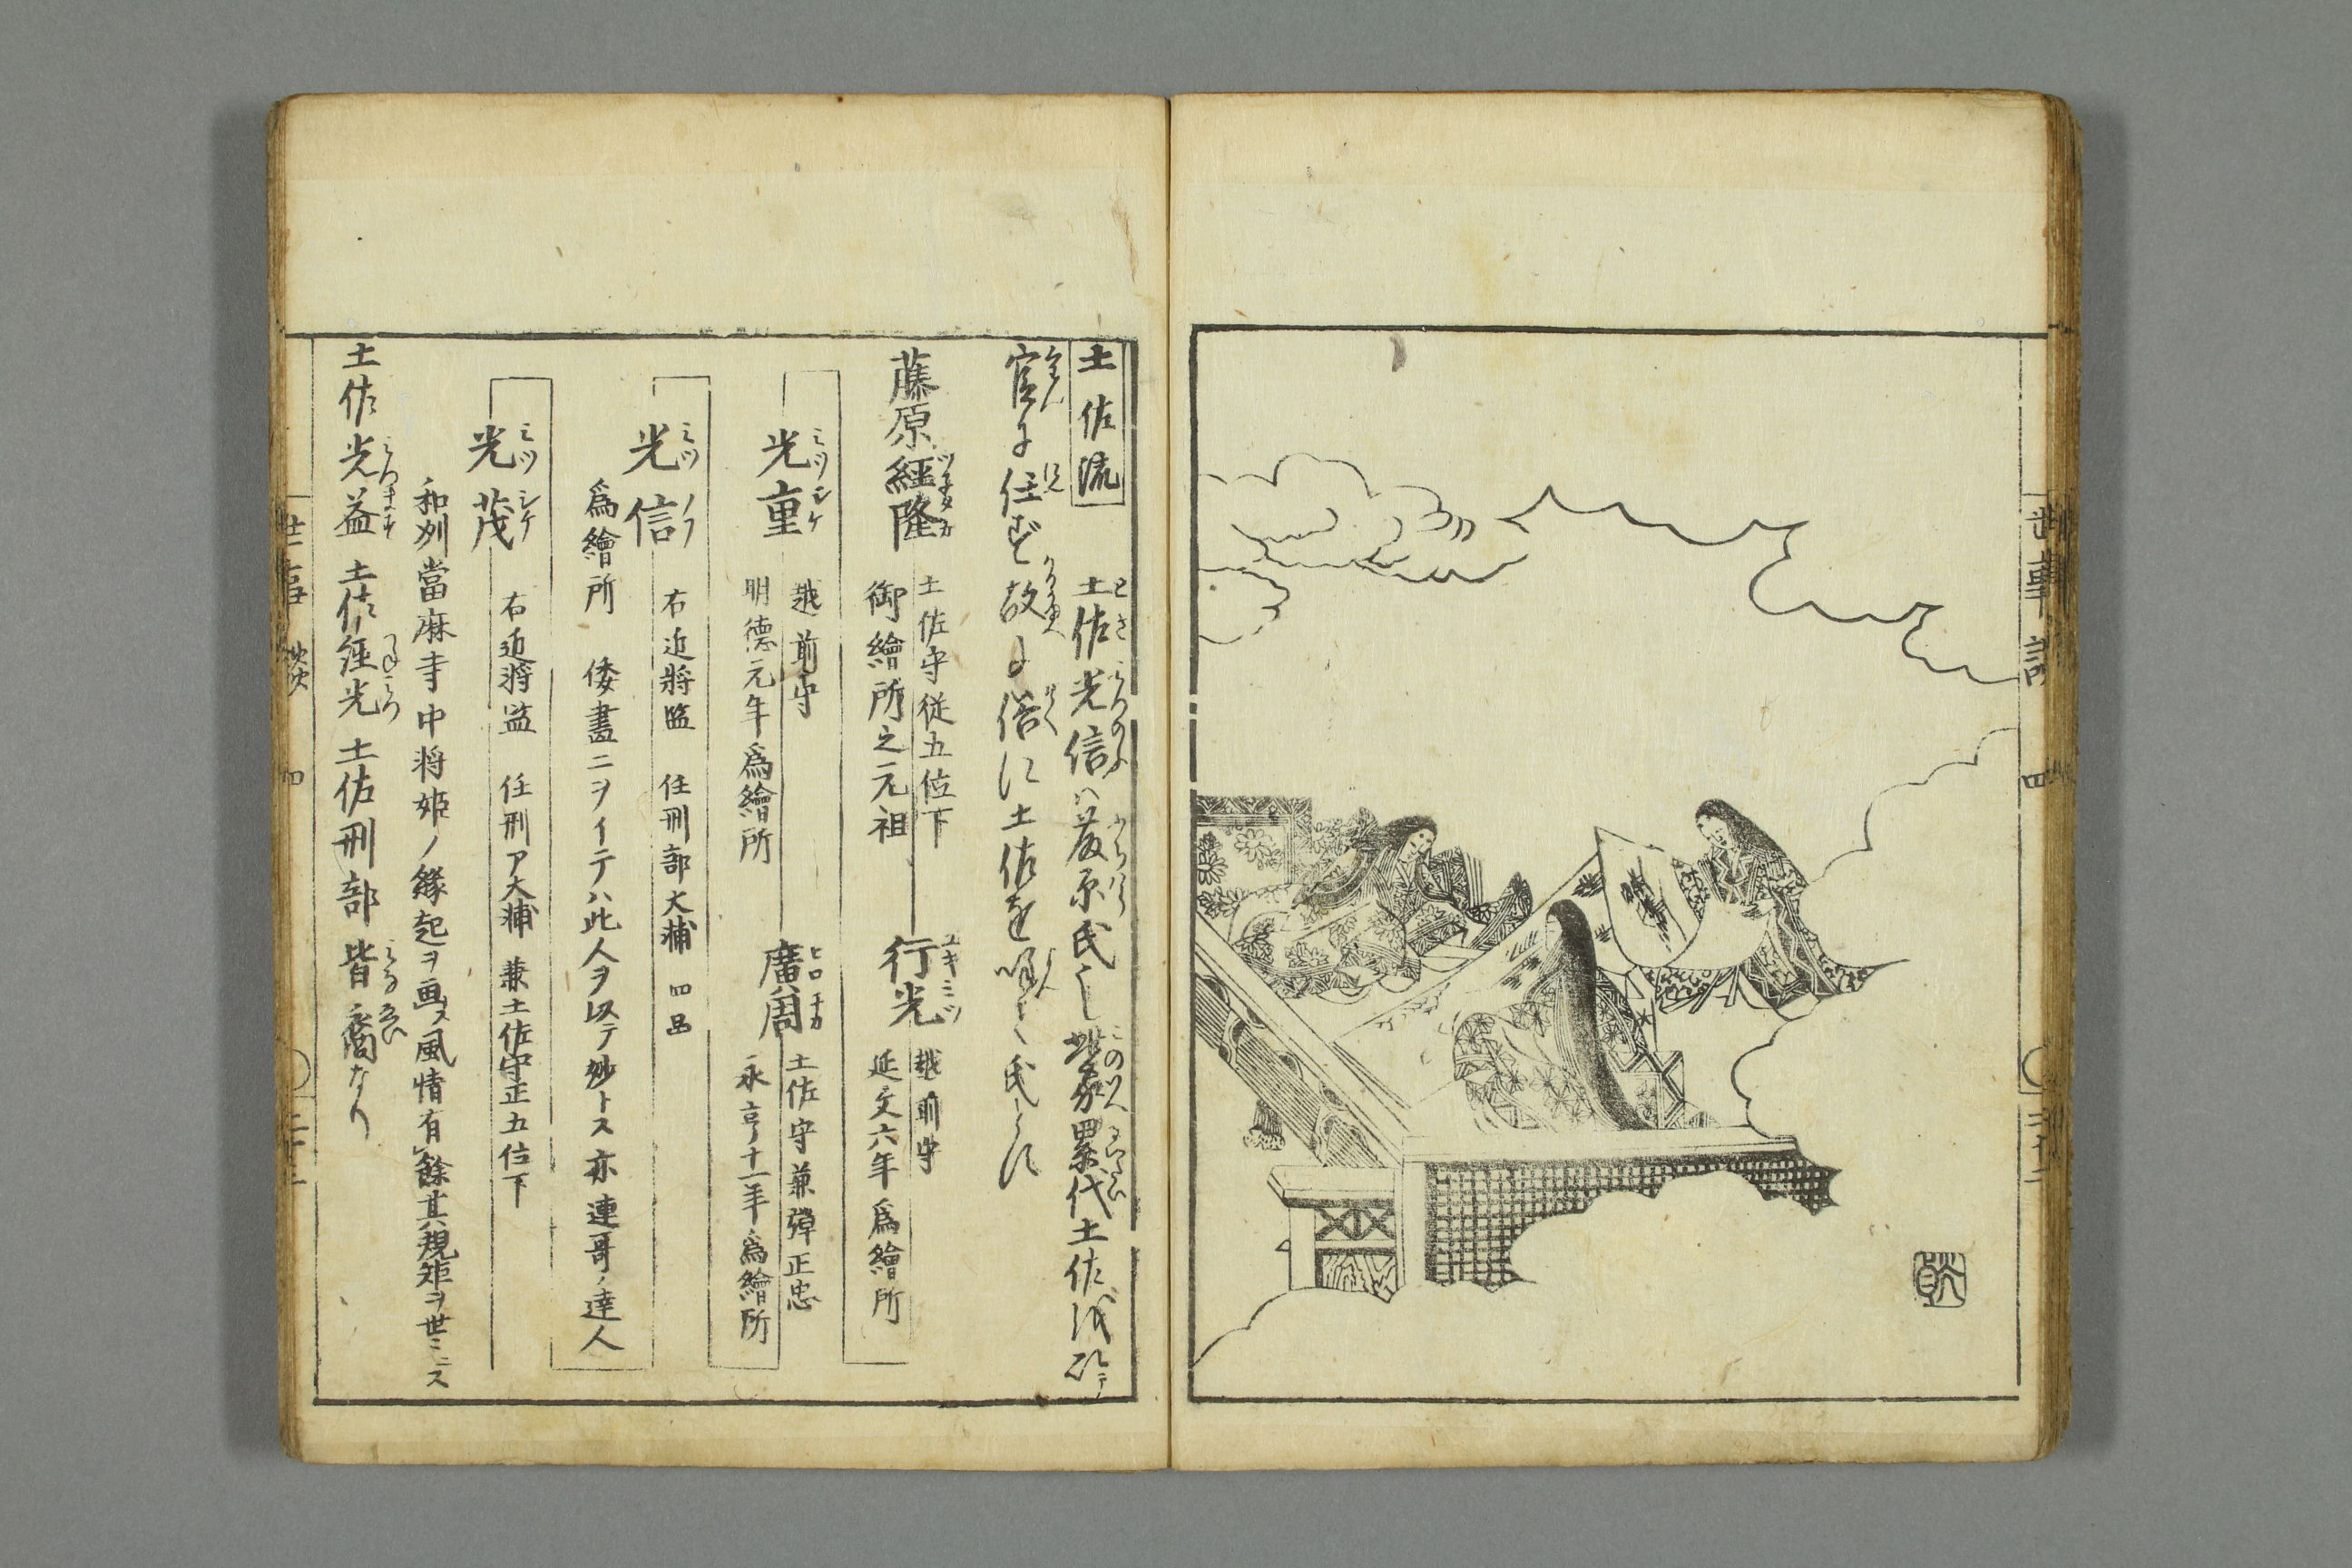 土佐流
土佐光信ハ藤原氏也此家累代土佐
官に任ず故に俗に土佐を
藤原經隆
土佐守従五位下
御繪所之元祖
行光
越前守
延文六年爲繪所
光重
越前守
明徳元年爲繪所
廣周
土佐守兼彈正忠
永享十一年爲繪所
光信
右近將監 任刑部大輔 四品
爲繪所 倭畫ニヲイテハ此人ヲ以テ妙トス亦連哥ノ達人
光茂
右近將監 任刑ア大輔 兼土佐守正五位下
和刕當麻寺中将姫ノ縁起ヲ画ク風情有餘其規矩ヲ世ニ
土佐光益 土佐経光 土佐刑部 皆 裔なり